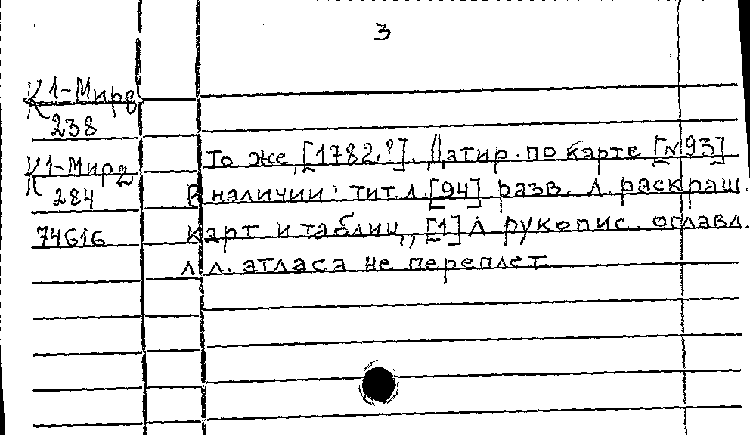 3
К1-Мира
238
К1-Мира
284
74616
То же, [1782.?]. Датир. по карте [№93]
В наличии: тит. л. [94] разв. л. раскраш.
карт и таблиц, [1] л рукопис. оглавл.
Л л. атласа не переплет